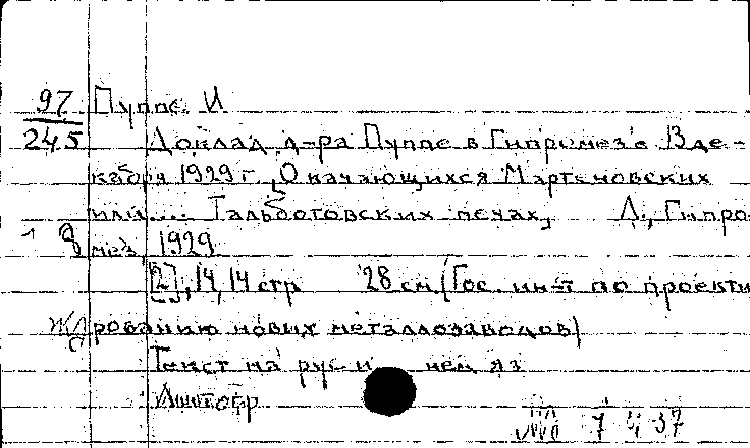 97 Пуппе. И
245 Доклад д-ра Пуппе в Гипромез'е 13 де-
кабря 1929 г. "О качающихся Мартеновских
или... Тальботовских печах, Л., Гипро
мез, 1929
[2], 14, 14 стр 28 см. (Гос. ин-т по проекти
рованию новых металлозаводов)
Текст на рус и нем яз
Литогр
7 4 37